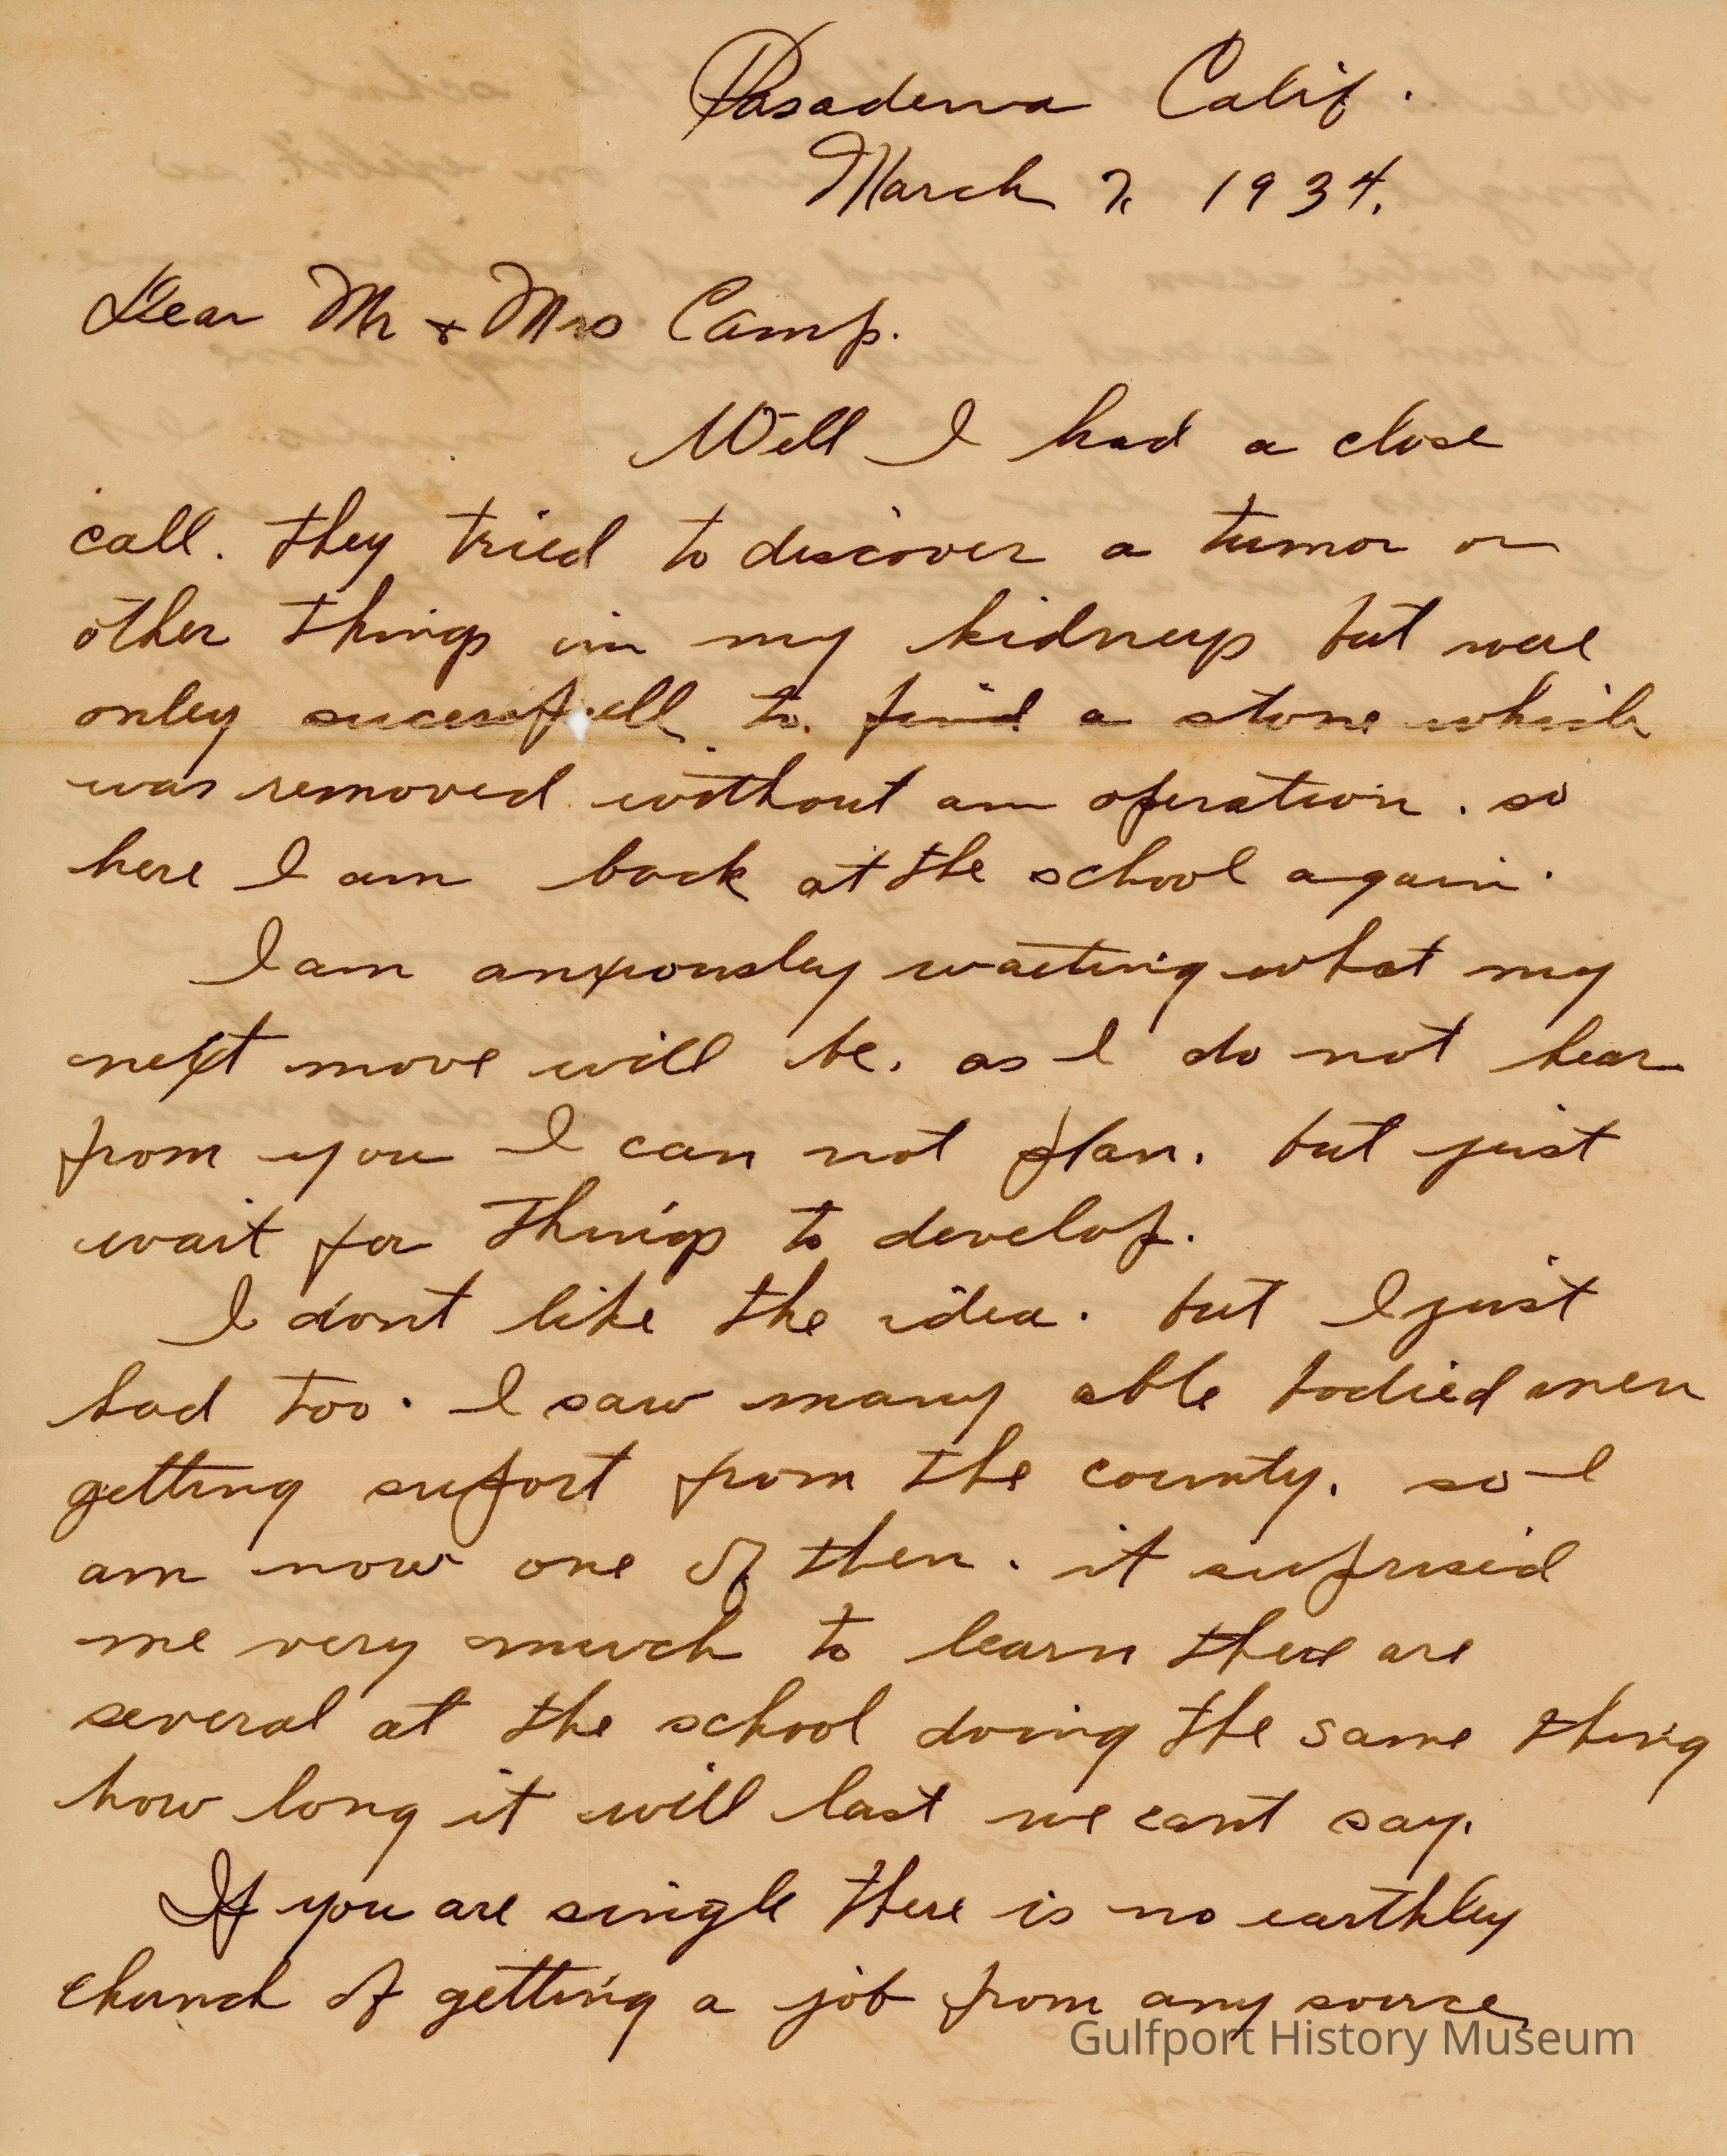 Pasadena Calif.
March 7, 1934.
Dear Mr & Mrs Camp.
Well I had a close
call. they tried to discover a tumor or
other things in my kidneys but were
onley sucessfull to find a stone which
was removed without an operation. so
here I am back at the school again.
I am anxiousley waiting what my
next move will be. as I do not hear
from you I can not plan. but just
wait for things to develop.
I dont like the idea. but I just
had too. I saw many able bodied men
getting suport from the county. so I
am now one of then. it suprised
me very much to learn there are
several at the school doing the same thing
how long it will last we cant say.
If you are single there is no earthley
chanch of getting a job from any source
Gulfport History Museum